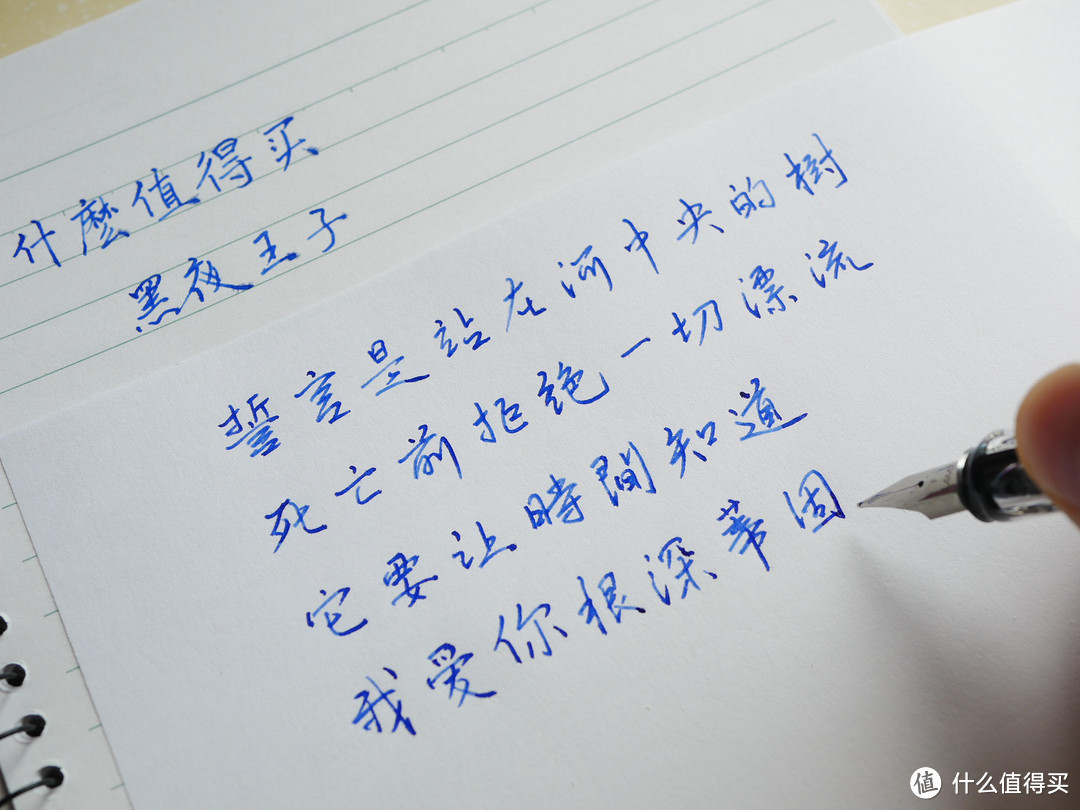 什麼值得买
黑夜王子
誓言是站在河中央的樹
死亡前拒绝一切漂流
它要让時間知道
我爱你根深蒂固
值 什么值得买